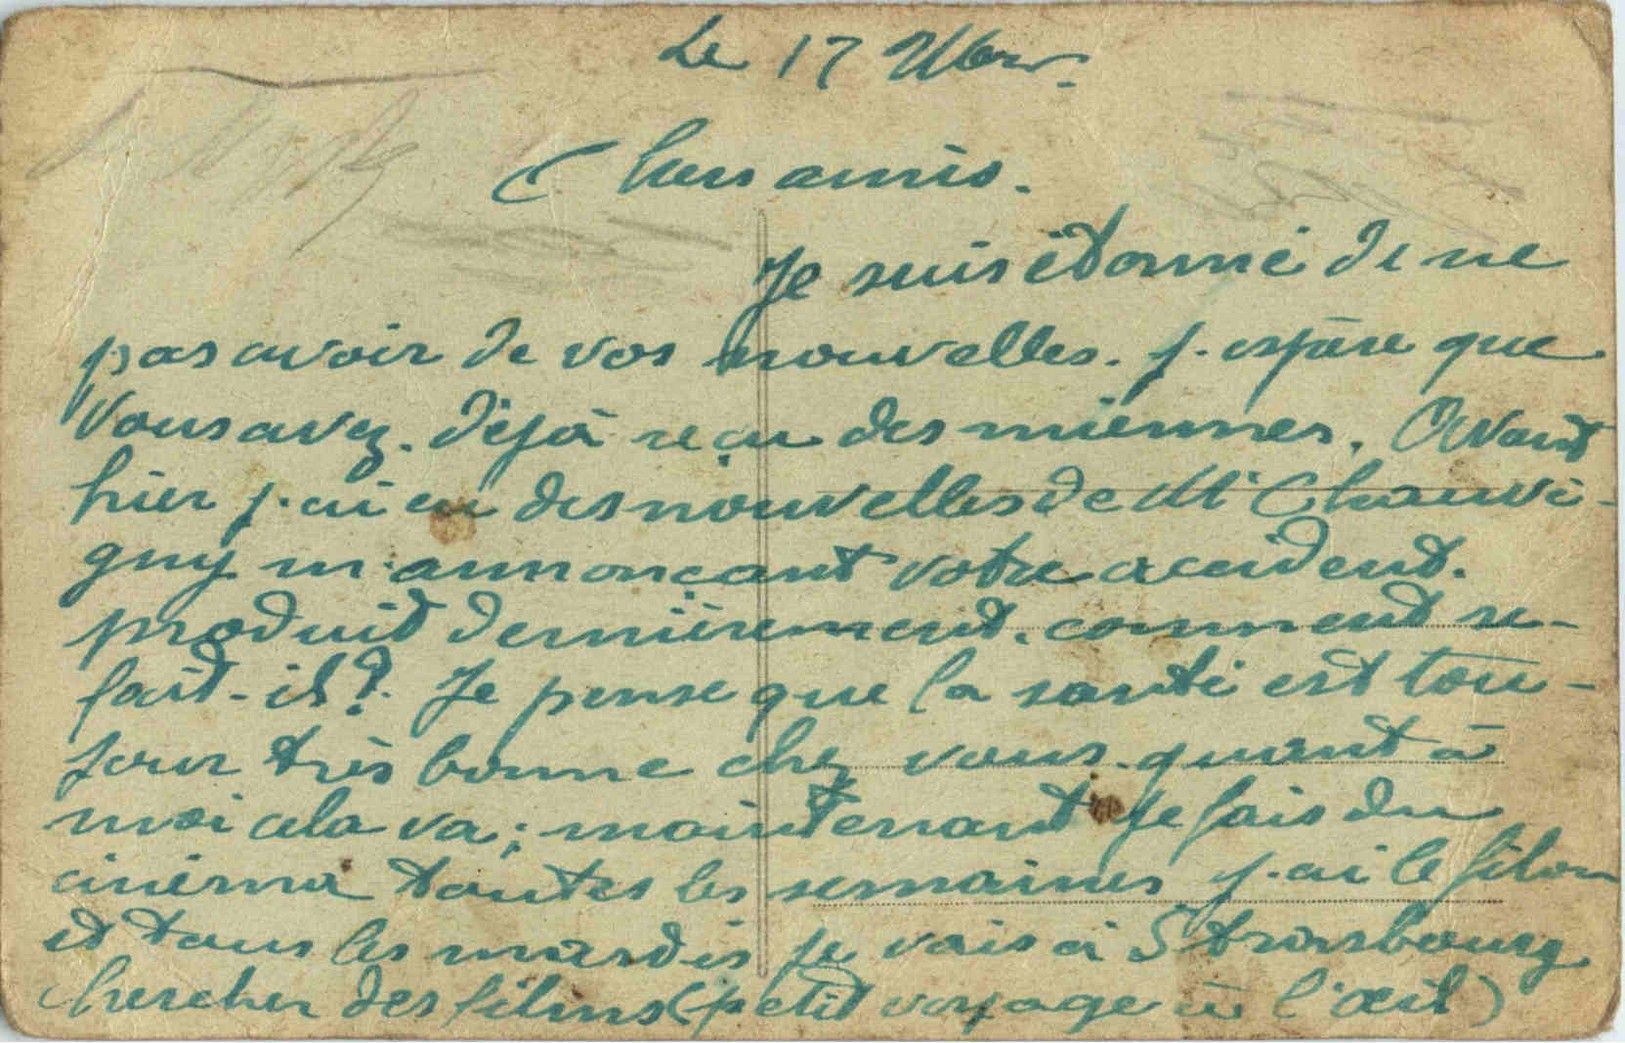 Le 17 9bre
Chers amis.
Je suis étonné de ne
pas avoir de vos nouvelles. j'espère que
vous avez déjà reçu des miennes. Avant
hier j'ai eu des nouvelles de Mr Chauvi-
gny m'annonçant votre accident
produit dernièrement. comment se
fait-il? Je pense que la santé est tou-
jour très bonne chez vous. quant à
moi cela va; maintenant je fais du
cinéma toutes les semaines j'ai le filon
et tous les mardis je vais à Strasbourg
chercher des films (petit voyage à l'œil)